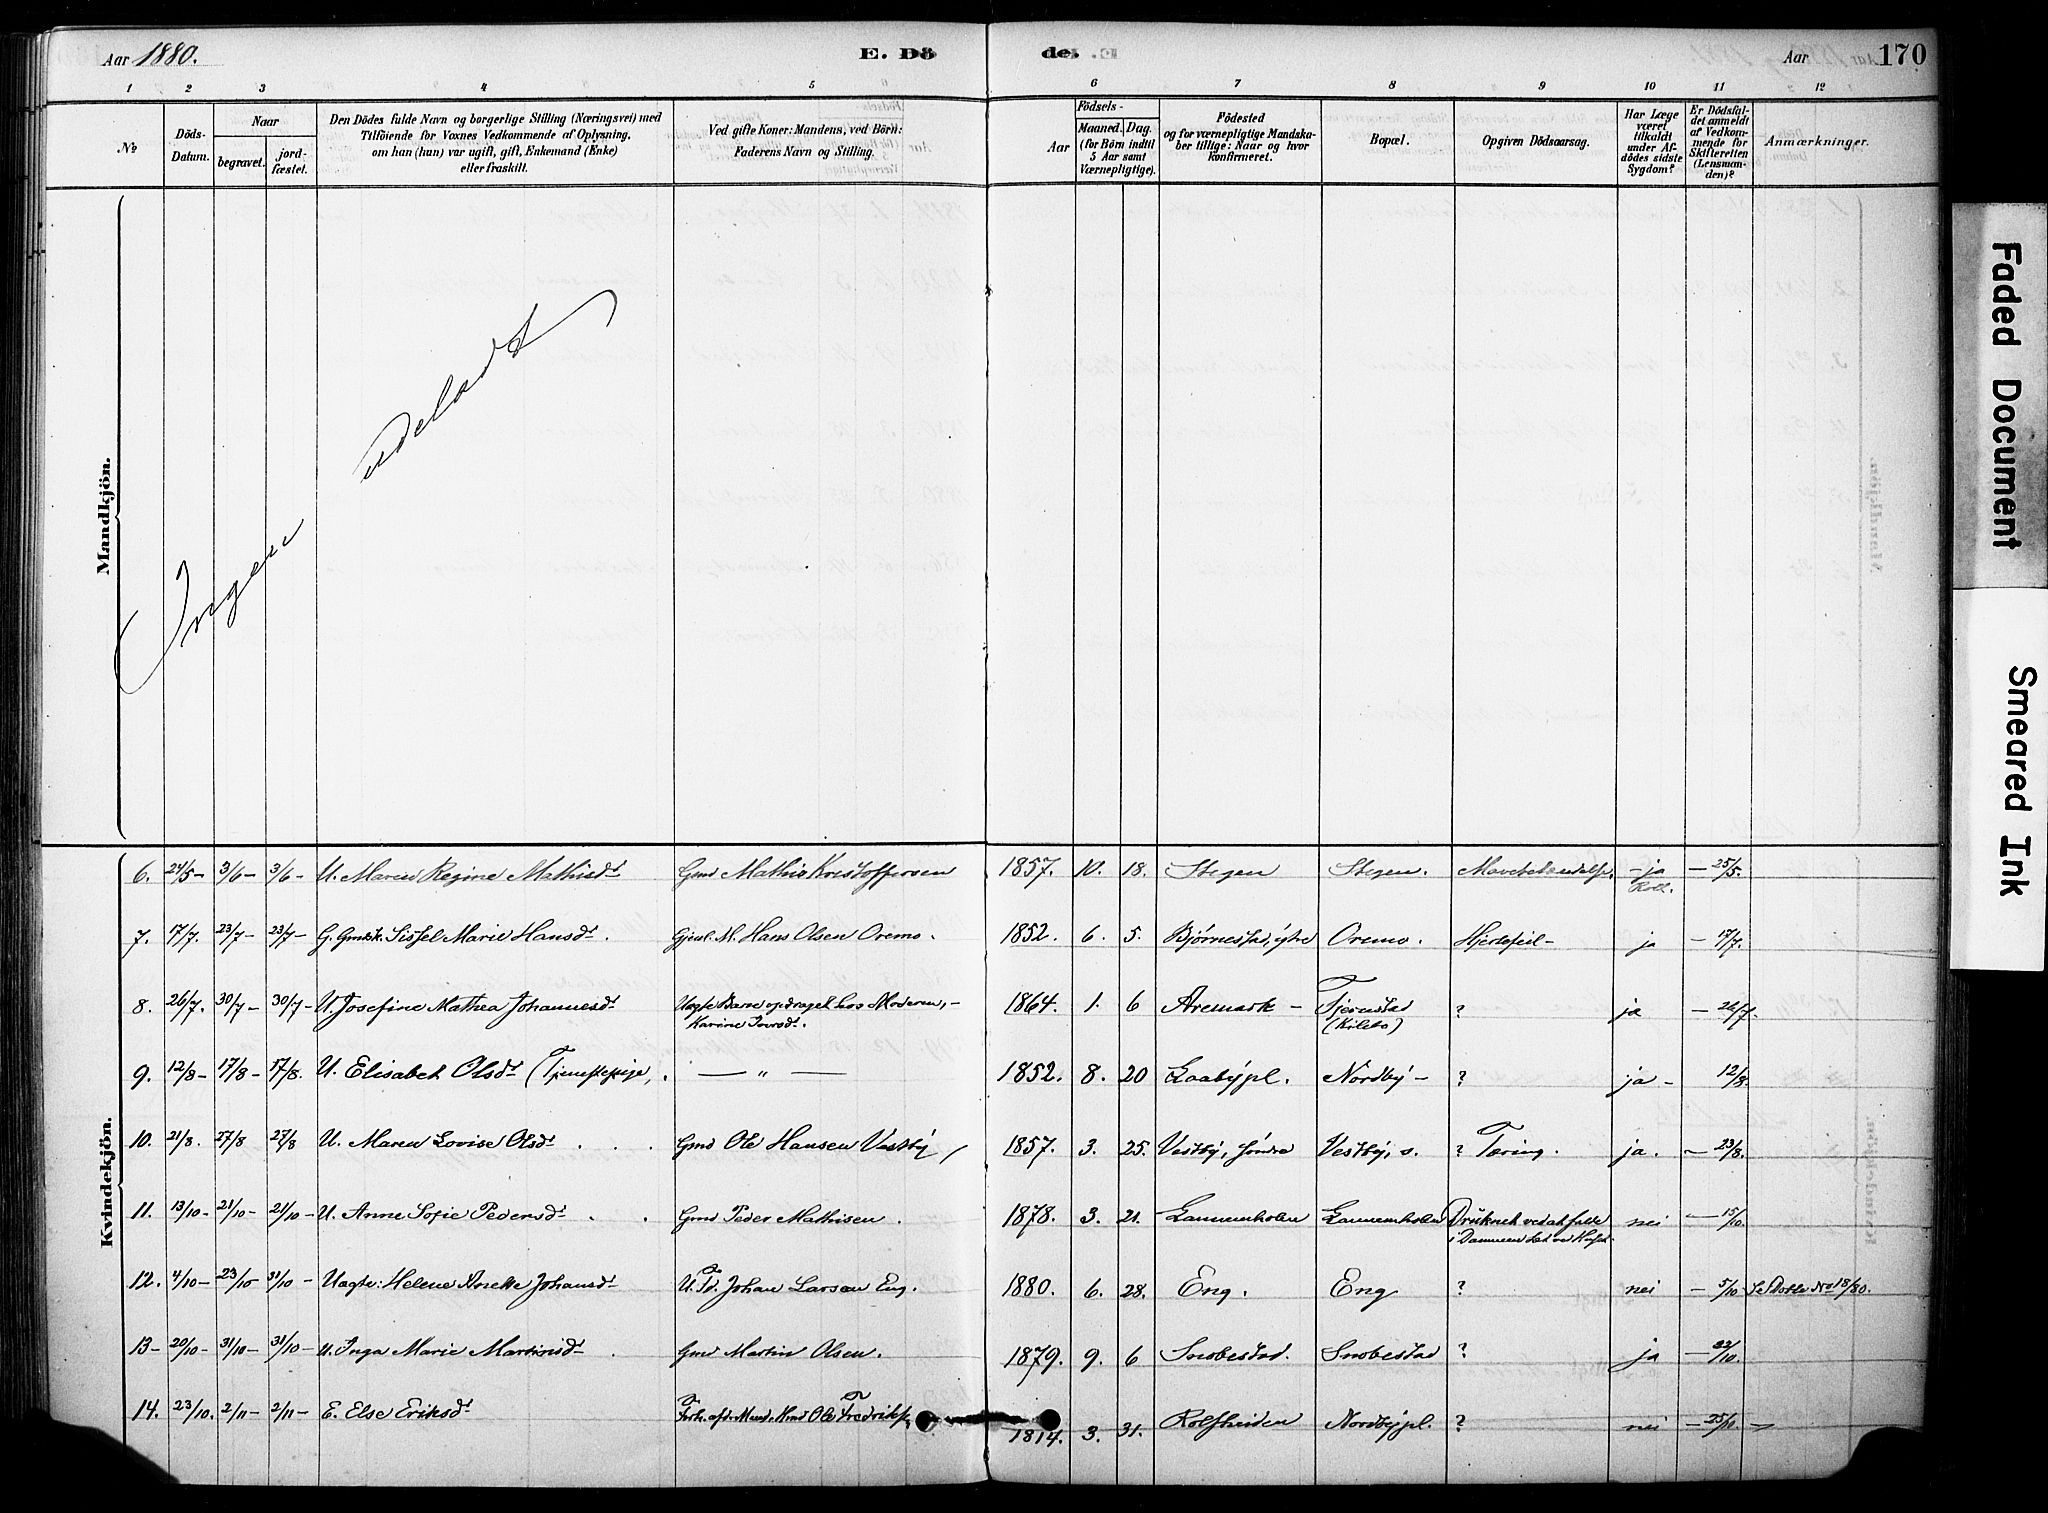 Aar 1880.
E. Dö
de.
Aar
170
1 2 3 4 5 6 7 8 9 10 11 12
No
Döds-Datum.
Naar
begravet.
jord-fæstet.
Den Dödes fulde Navn og borgerlige Stilling (Næringsvei) med
Tilföiende for Voxnes Vedkommende af Oplysning,
om han (hun) var ugift, gift, Enkemand (Enke)
eller fraskilt.
Ved gifte Koner: Mandens, ved Börn:
Faderens Navn og Stilling.
Födsels-
Aar
Maaned. Dag.
(for Börn indtil
5 Aar samt
Værnepligtige).
Födested
og for værnepligtige Mandska-
ber tillige: Naar og hvor
konfirmeret.
Bopæl.
Opgiven Dödsaarsag.
Har Læge
været
tilkaldt
under Af-
dödes sidste
Sygdom?
Er Dödsfal-
det anmeldt
af Vedkom-
mende for
Skifteretten
(Lensman-
den)?
Anmærkninger.
Mandkjön.
Ingen udeladt
Kvindekjön.
6. 24/5- 3/6- 3/6- U. Maren Regine Mathisdt Gmd Mathis Kristoffersen 1857. 10. 18. Stegen Stegen. Mavebetændelse. -ja — 25/5.
7. 17/7. 23/7- 23/7- G. Gmdsk. Sissel Marie Hansdt. Gjenl. M. Hans Olsen Oremo. 1852. 6. 5. Bjørnestad, ytre Oremo. Hjertefeil- ja — 17/7.
8. 26/7. 30/7- 30/7- U. Josefine Mathea Johannesdt Uægte Barn opdraget hos Moderen,- 1864. 1. 6 Aremark - Tjernstad ? ja — 26/7.
Karine Iversdt. (Kilebo)
9. 12/8- 17/8- 17/8. U. Elisabet Olsdt (Tjenestepige, . — " — 1852. 8. 20 Laabypl. Nordby - ? ja - 12/8.
10. 21/8. 27/8 27/8 U. Maren Lovise Olsdt . . Gmd Ole Hansen Vestby, 1857. 3. 25. Vestby, søndre Vestby, s. ? Tæring. ja. — 23/8.
11. 13/10- 21/10- 21/10- U. Anne Sofie Pedersdt . . Gmd Peder Mathisen. 1878. 3. 21. Lannemholm Lannemholm Druknet ved at falde nei — 15/10.
i Dammen
12. 4/10- 23/10 31/10- Uægte: Helene Anette Johansdt U. Johan Larsen Eng. 1880. 6. 28. Eng. Eng ? nei — 5/10 Se Døbte No 18/80.
13- 20/10- 31/10- 31/10- U. Inga Marie Martinsdt . Gmd Martin Olsen. 1879. 9. 6 Snobestad. Snobestad ? ja — 22/10.
14. 23/10. 2/11- 2/11- E. Else Eriksdt Forh. afd. Mand. Gmd Ole Fredriks 1814. 3. 31. Rolfheiden Nordbypl. ? nei — 25/11.
Faded Document
Smeared Ink